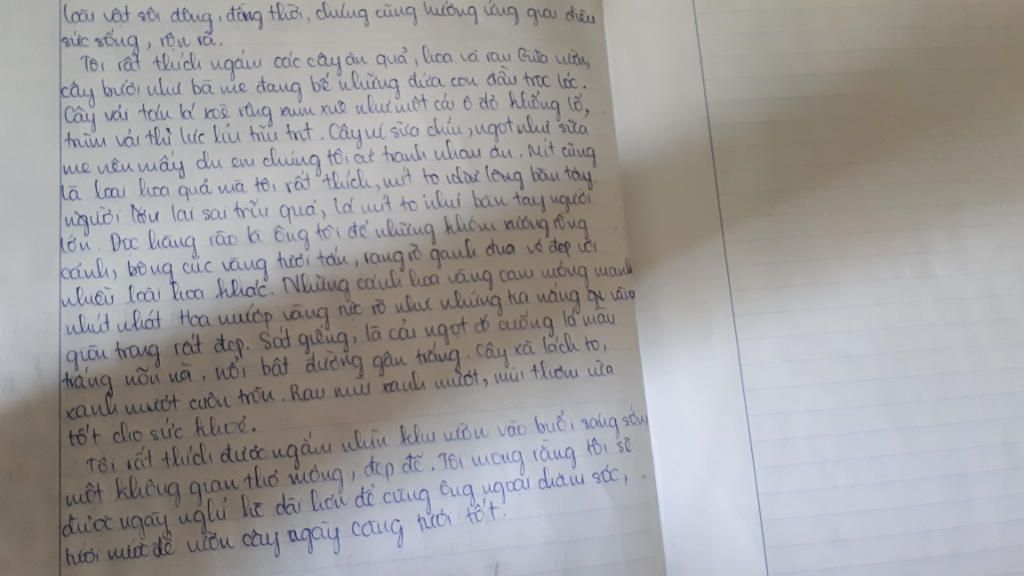 loài vật sôi động, đồng thời, chúng cũng hưởng ứng giai điệu
sức sống, rộn rã.
Tôi rất thích ngắm các cây ăn quả, hoa và rau. Giữa vườn,
cây bưởi như bà mẹ đang bế những đứa con đầu trọc lóc.
Cây vải tán lá xoè rộng xum xuê như một cái ô đỏ khổng lồ,
chùm vải thì lúc lỉu trĩu trịt. Cây vú sữa chín, ngọt như sữa
mẹ nên mấy chị em chúng tôi cứ tranh nhau ăn. Mít cũng
là loại hoa quả mà tôi rất thích, mít to như lòng bàn tay
người lớn lại sai trĩu quả, lá mít to như bàn tay người
lớn. Dọc hàng rào là ông tôi để những khóm
cánh, bông cúc vàng tươi tắn, rạng rỡ ganh đua vẻ đẹp với
nhiều loài hoa khác. Những cánh hoa vàng cam mỏng manh
nhút nhát. Hoa mướp vàng rực rỡ như những tia nắng
giàn trông rất đẹp. Sát giếng, lá cải ngọt có cuống lá màu
trắng nõn nà, nổi bật đường gân trắng. Cây xà lách to,
xanh mướt cuộn tròn. Rau mùi xanh mướt, mùi thơm vừa
tốt cho sức khoẻ.
Tôi rất thích được ngắm nhìn khu vườn vào buổi sáng sớm
một không gian thơ mộng, đẹp đẽ. Tôi mong rằng tôi sẽ
được ngày nghỉ hè dài hơn để cùng ông ngoại chăm sóc,
tưới nước để vườn cây ngày càng tươi tốt.